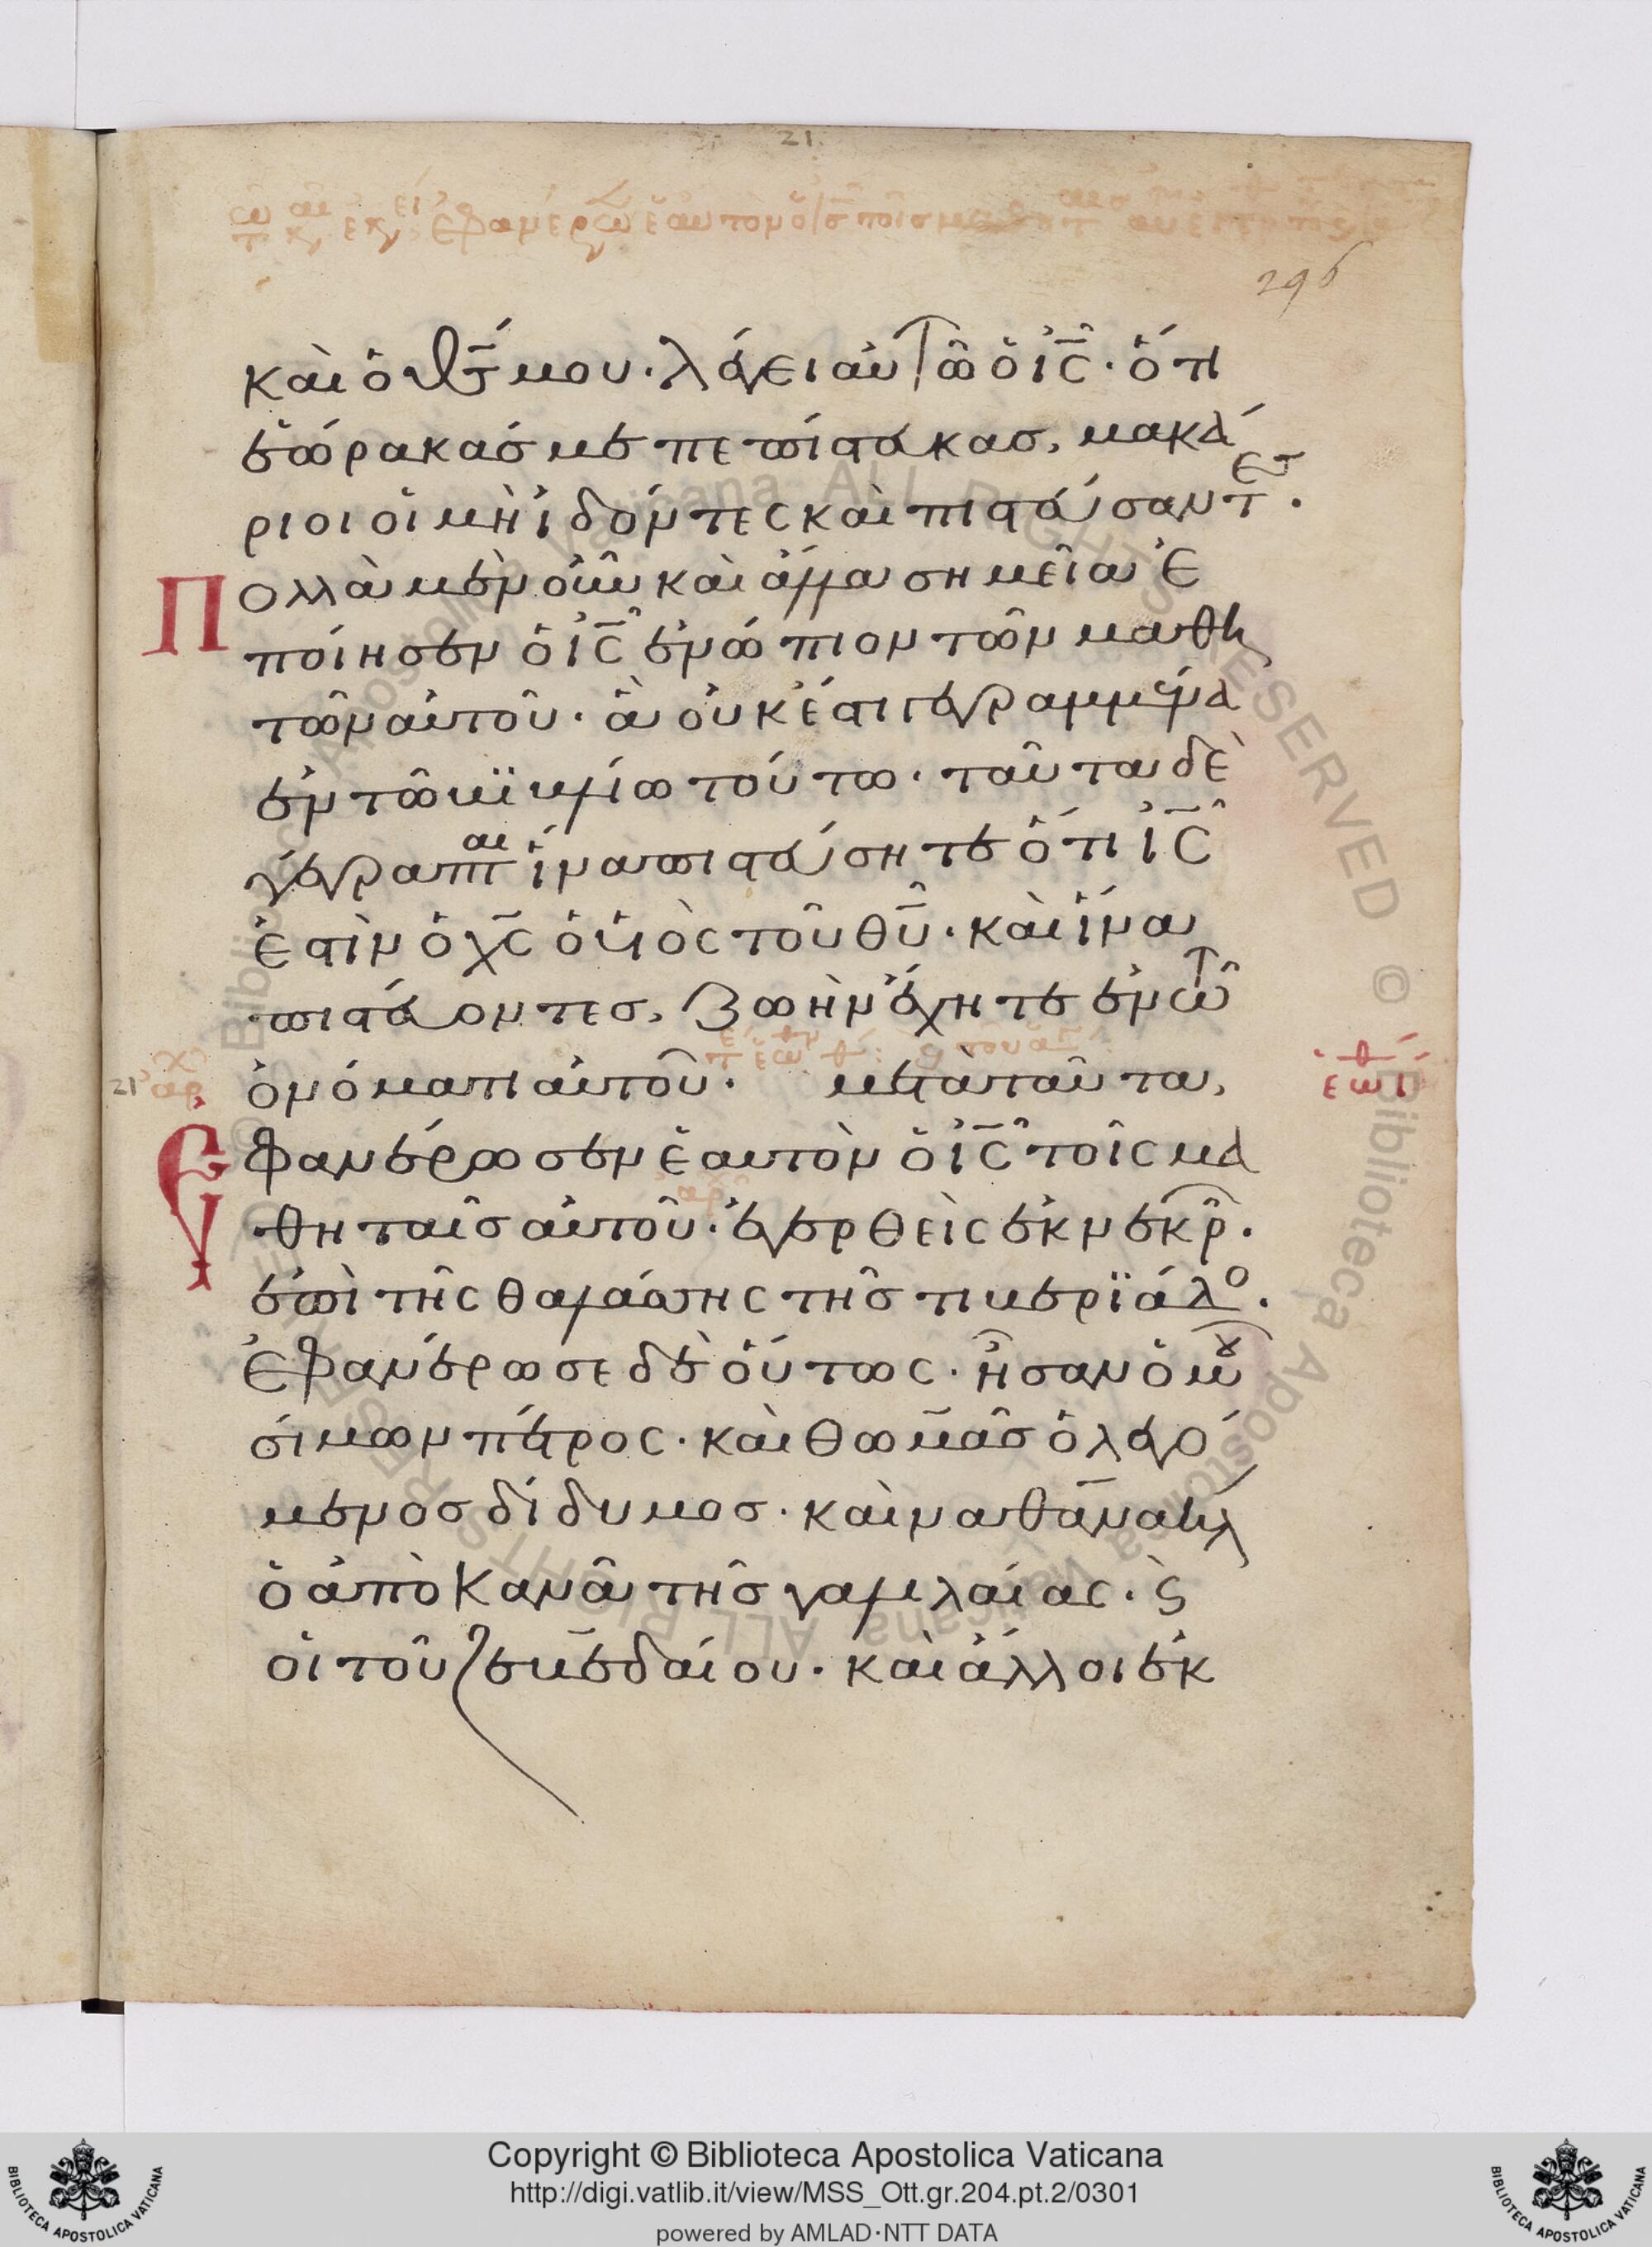 21
296
καὶ ὁ θς́ μου · λέγει αὐτῶ ὁ ἰς̑ · ὅτι
ἑώρακάσ με πεπίστευκασ, μακά
ριοι οἱ μὴ ἰδόντες καὶ πιστεύσαντες .
Πολλὰ μὲν οὖν καὶ ἄλλα σημεῖα ἐ
ποίησεν ὁ ἰς̑ ἐνώπιον τῶν μαθη
τῶν αὐτοῦ · ἃ οὐκ ἔστι γεγραμμένα
ἐν τῶ βϊβλίω τούτω · ταῦτα δὲ
γέγραπται ἵνα πιστεύσητε ὅτι ἰς̑
ἐστὶν ὁ χς̄ ὁ υἱὸς τοῦ θῦ · καὶ ἵνα
πιστεύοντεσ, ζωὴν ἔχητε ἐν τῶ
ὀνόματι αὐτοῦ · μετὰ ταῦτα,
21
Ἐφανέρωσεν ἑαυτὸν ὁ ἰς̑ τοῖς μα
θηταῖσ αὐτοῦ · ἐγερθεὶς ἐκ νεκρ̑ .
ἐπὶ τῆς θαλάσσης τῆσ τιβερϊάδο .
Ἐφανέρωσε δὲ οὕτως · ἦσαν ὁμοῦ
σίμων πέτρος · καὶ θωμᾶσ ὁ λεγό
μενοσ δίδυμοσ · καὶ ναθαναὴλ
ὁ ἀπὸ Κανᾶ τῆσ γαλιλαίας · ϛ
οἱ τοῦ ζεβεδαίου · καὶ ἄλλοι ἐκ
Copyright © Biblioteca Apostolica Vaticana
http://digi.vatlib.it/view/MSS_Ott.gr.204.pt.2/0301
powered by AMLAD·NTT DATA
BIBLIOTECA APOSTOLICA VATICANA
BIBLIOTECA APOSTOLICA VATICANA